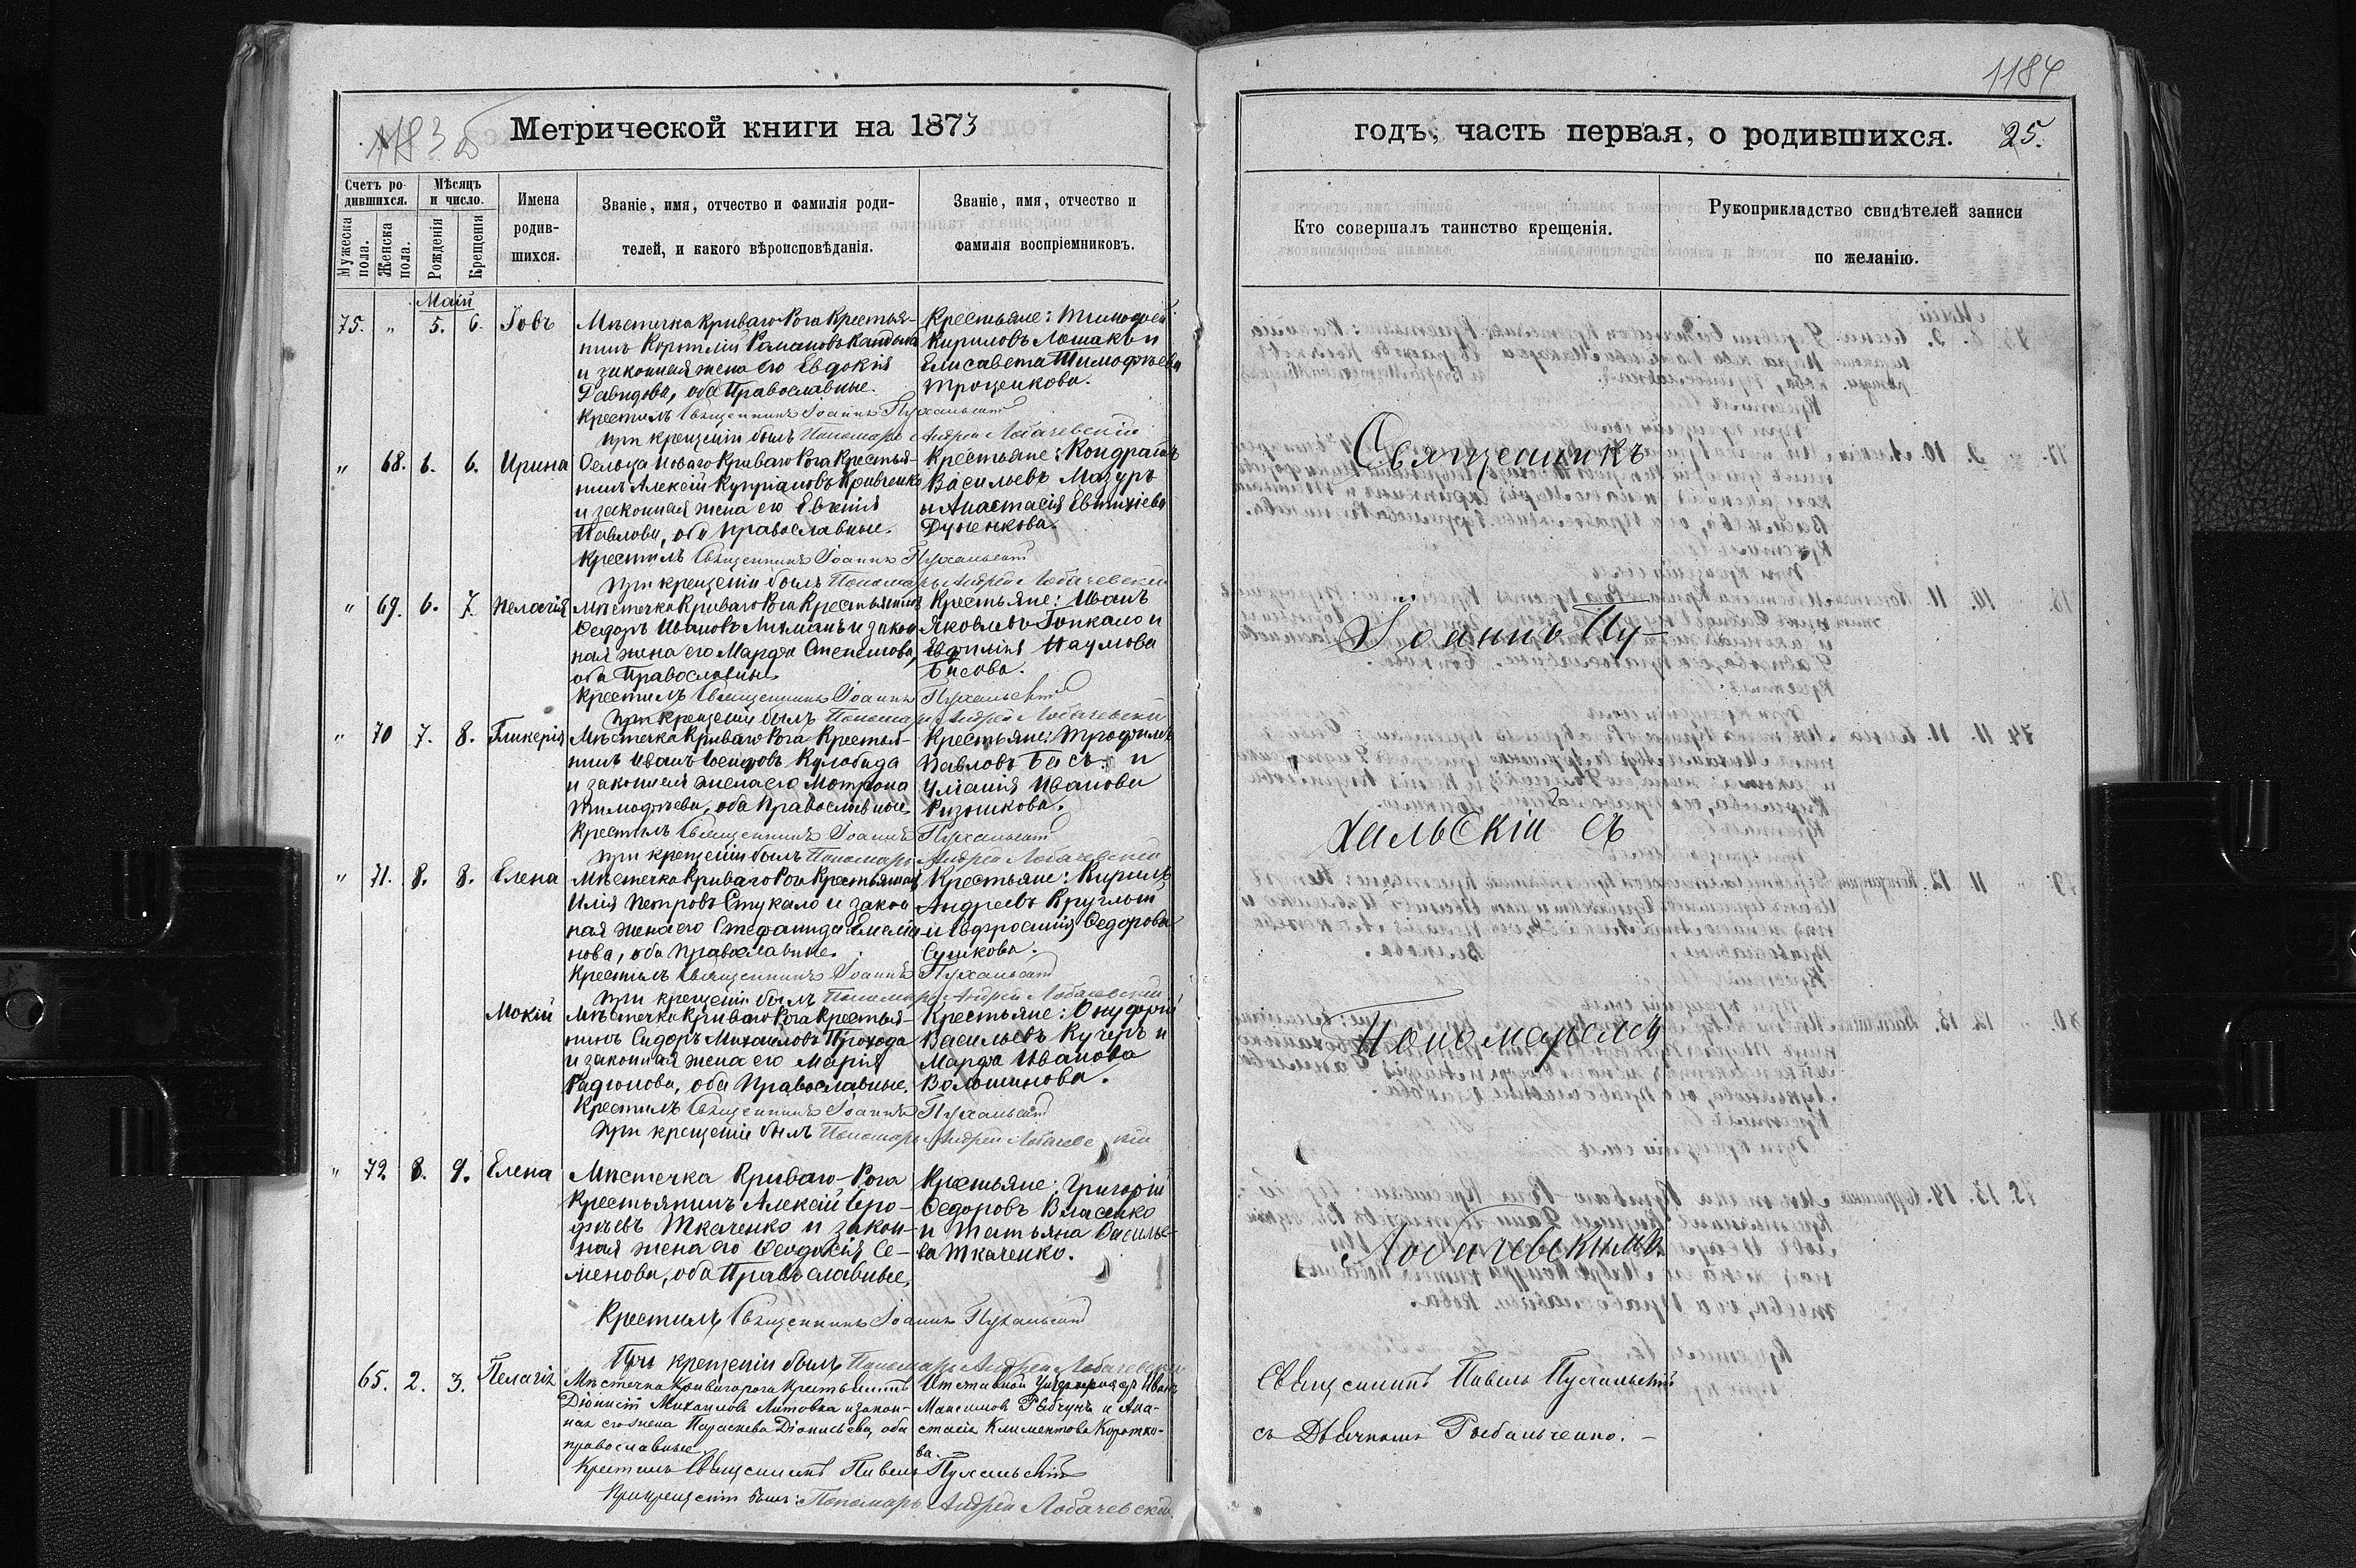 1183 б
Метрической книги на 1873
Счетъ родившихся.
Мужеска пола.
Женска пола.
Мѣсяцъ и число.
Рожденія
Крещенія
Имена родившихся.
Званіе, имя, отчество и фамилія родителей, и какого вѣроисповѣданія.
Званіе, имя, отчество и фамилія воспріемниковъ.
Май
75. „ 5. 6. Іовъ
Мѣстечка Криваго Рога Крестья-
нинъ Корнилій Романовъ
и законная жена его Евдокія
Давидова, оба Православные.
Крестьяне: Тимофей
Кириловъ Лошакъ и
Елисавета Тимофѣева
Троценкова.
Крестилъ Священникъ Іоаннъ Пухальскій
При крещеніи былъ Пономарь Андрей Лобачевскій
„ 68. 6. 6. Ирина
Сельца Новаго Криваго Рога Крестья-
нинъ Алексій Купріановъ Кривченко
и законная жена его Евѳимія
Павлова, оба Православные.
Крестьяне: Кондратъ
Васильевъ Мазуръ
и Анастасія Евѳиміева
Крестилъ Священникъ Іоаннъ Пухальскій
При крещеніи былъ Пономарь Андрей Лобачевскій
„ 69. 6. 7. Пелагія
Мѣстечка Криваго Рога Крестьянинъ
Ѳедоръ Ивановъ и закон-
ная жена его Марфа
оба Православные.
Крестьяне: Иванъ
Яковлевъ Гопкало и
Наумова
Басова.
Крестилъ Священникъ Іоаннъ Пухальскій
При крещеніи былъ Пономарь Андрей Лобачевскій
„ 70 7. 8. Гликерія
Мѣстечка Криваго Рога Крестья-
нинъ Иванъ Іосифовъ Кулобида
и законная жена его Мотрона
Тимофѣева, оба Православные.
Крестьяне: Трофимъ
Павловъ Басъ и
Иванова
Крестилъ Священникъ Іоаннъ Пухальскій
При крещеніи былъ Пономарь Андрей Лобачевскій
„ 71. 8. 8. Елена
Мѣстечка Криваго Рога Крестьянинъ
Илія Петровъ Стукало и закон
ная жена его Стефанида Емелія
нова, оба Православные.
Крестьяне: Кирилъ
Андреевъ Круглый
и Евфросинія Ѳедорова
Сушкова.
Крестилъ Священникъ Іоаннъ Пухальскій
При крещеніи былъ Пономарь Андрей Лобачевскій
Мокій
Мѣстечка Криваго Рога Крестья-
нинъ Сидоръ Михаиловъ Прохода
и законная жена его Марія
Радіонова, оба Православные.
Крестьяне: Онуфрій
Васильевъ Кучеръ и
Марфа Иванова
Волошинова.
Крестилъ Священникъ Іоаннъ Пухальскій
При крещеніи былъ Пономарь Андрей Лобачевскій
„ 72 8. 9. Елена
Мѣстечка Криваго Рога
Крестьянинъ Алексій Еро-
фѣевъ Ткаченко и закон-
ная жена его Ѳеодосія Се-
менова, оба Православные,
Крестьяне: Григорій
Ѳедоровъ Власенко
и Татьяна Василье-
ва Ткаченко.
Крестилъ Священникъ Іоаннъ Пухальскій
При крещеніи былъ Пономарь Андрей Лобачевскій
65. 2. 3. Пелагія
Мѣстечка Кривагорога Крестьянинъ
Діонисій Михаиловъ Литовка и закон-
ная его жена Параскева Діонисьева, оба
православные
Отставной Унтерофицеръ Иванъ
Максимовъ и Ана-
стасія Климентова Коротко-
ва.
Крестилъ Священникъ Павелъ Пухальскій
При крещеніи былъ: Пономарь Андрей Лобачевскій
1184
годъ, часть первая, о родившихся. 25.
Кто совершалъ таинство крещенія.
Рукоприкладство свидѣтелей записи по желанію.
Священникъ
Іоаннъ Пу-
хальскій съ
Пономаремъ
Лобачевскимъ
Священникъ Павелъ Пухальскій
съ Дьячкомъ Рыбальченко. –